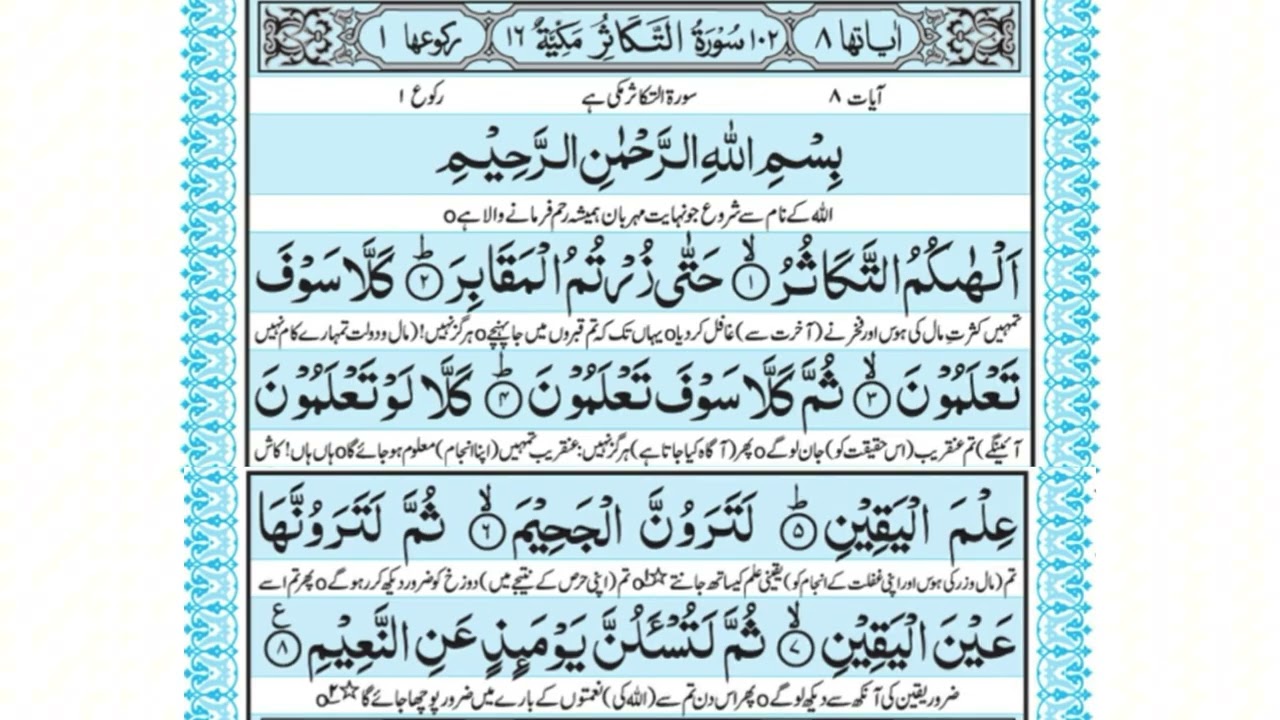 اٰیاتھا ۸ ۱۰۲ سُوْرَةُ التَّكَاثُرِ مَكِّيَّةٌ ۱۶ رکوعھا ۱
آیات ۸ سورۃ التکاثر مکی ہے رکوع ۱
بِسْمِ اللّٰهِ الرَّحْمٰنِ الرَّحِيْمِ
اللہ کے نام سے شروع جو نہایت مہربان ہمیشہ رحم فرمانے والا ہے o
اَلْهٰىكُمُ التَّكَاثُرُ ۙ﴿۱﴾ حَتّٰى زُرْتُمُ الْمَقَابِرَ ؕ﴿۲﴾ كَلَّا سَوْفَ
تمہیں کثرتِ مال کی ہوس اور فخر نے (آخرت سے) غافل کر دیا o یہاں تک کہ تم قبروں میں جا پہنچے o ہرگز نہیں! (مال و دولت تمہارے کام نہیں
تَعْلَمُوْنَ ۙ﴿۳﴾ ثُمَّ كَلَّا سَوْفَ تَعْلَمُوْنَ ؕ﴿۴﴾ كَلَّا لَوْ تَعْلَمُوْنَ
آئینگے) تم عنقریب (اس حقیقت کو) جان لو گے o پھر (آگاہ کیا جاتا ہے) ہرگز نہیں: عنقریب تمہیں (اپنا انجام) معلوم ہو جائے گا o ہاں ہاں! کاش
عِلْمَ الْيَقِيْنِ ؕ﴿۵﴾ لَتَرَوُنَّ الْجَحِيْمَ ۙ﴿۶﴾ ثُمَّ لَتَرَوُنَّهَا
تم (مال و زر کی ہوس اور اپنی غفلت کے انجام کو) یقینی علم کیساتھ جانتے ☆۱ o تم (اپنی حرص کے نتیجے میں) دوزخ کو ضرور دیکھ کر رہو گے o پھر تم اسے
عَيْنَ الْيَقِيْنِ ۙ﴿۷﴾ ثُمَّ لَتُسْـَٔلُنَّ يَوْمَىِٕذٍ عَنِ النَّعِيْمِ ﴿۸﴾ ع
ضرور یقین کی آنکھ سے دیکھ لو گے o پھر اس دن تم سے (اللہ کی) نعمتوں کے بارے میں ضرور پوچھا جائے گا ☆۲ o